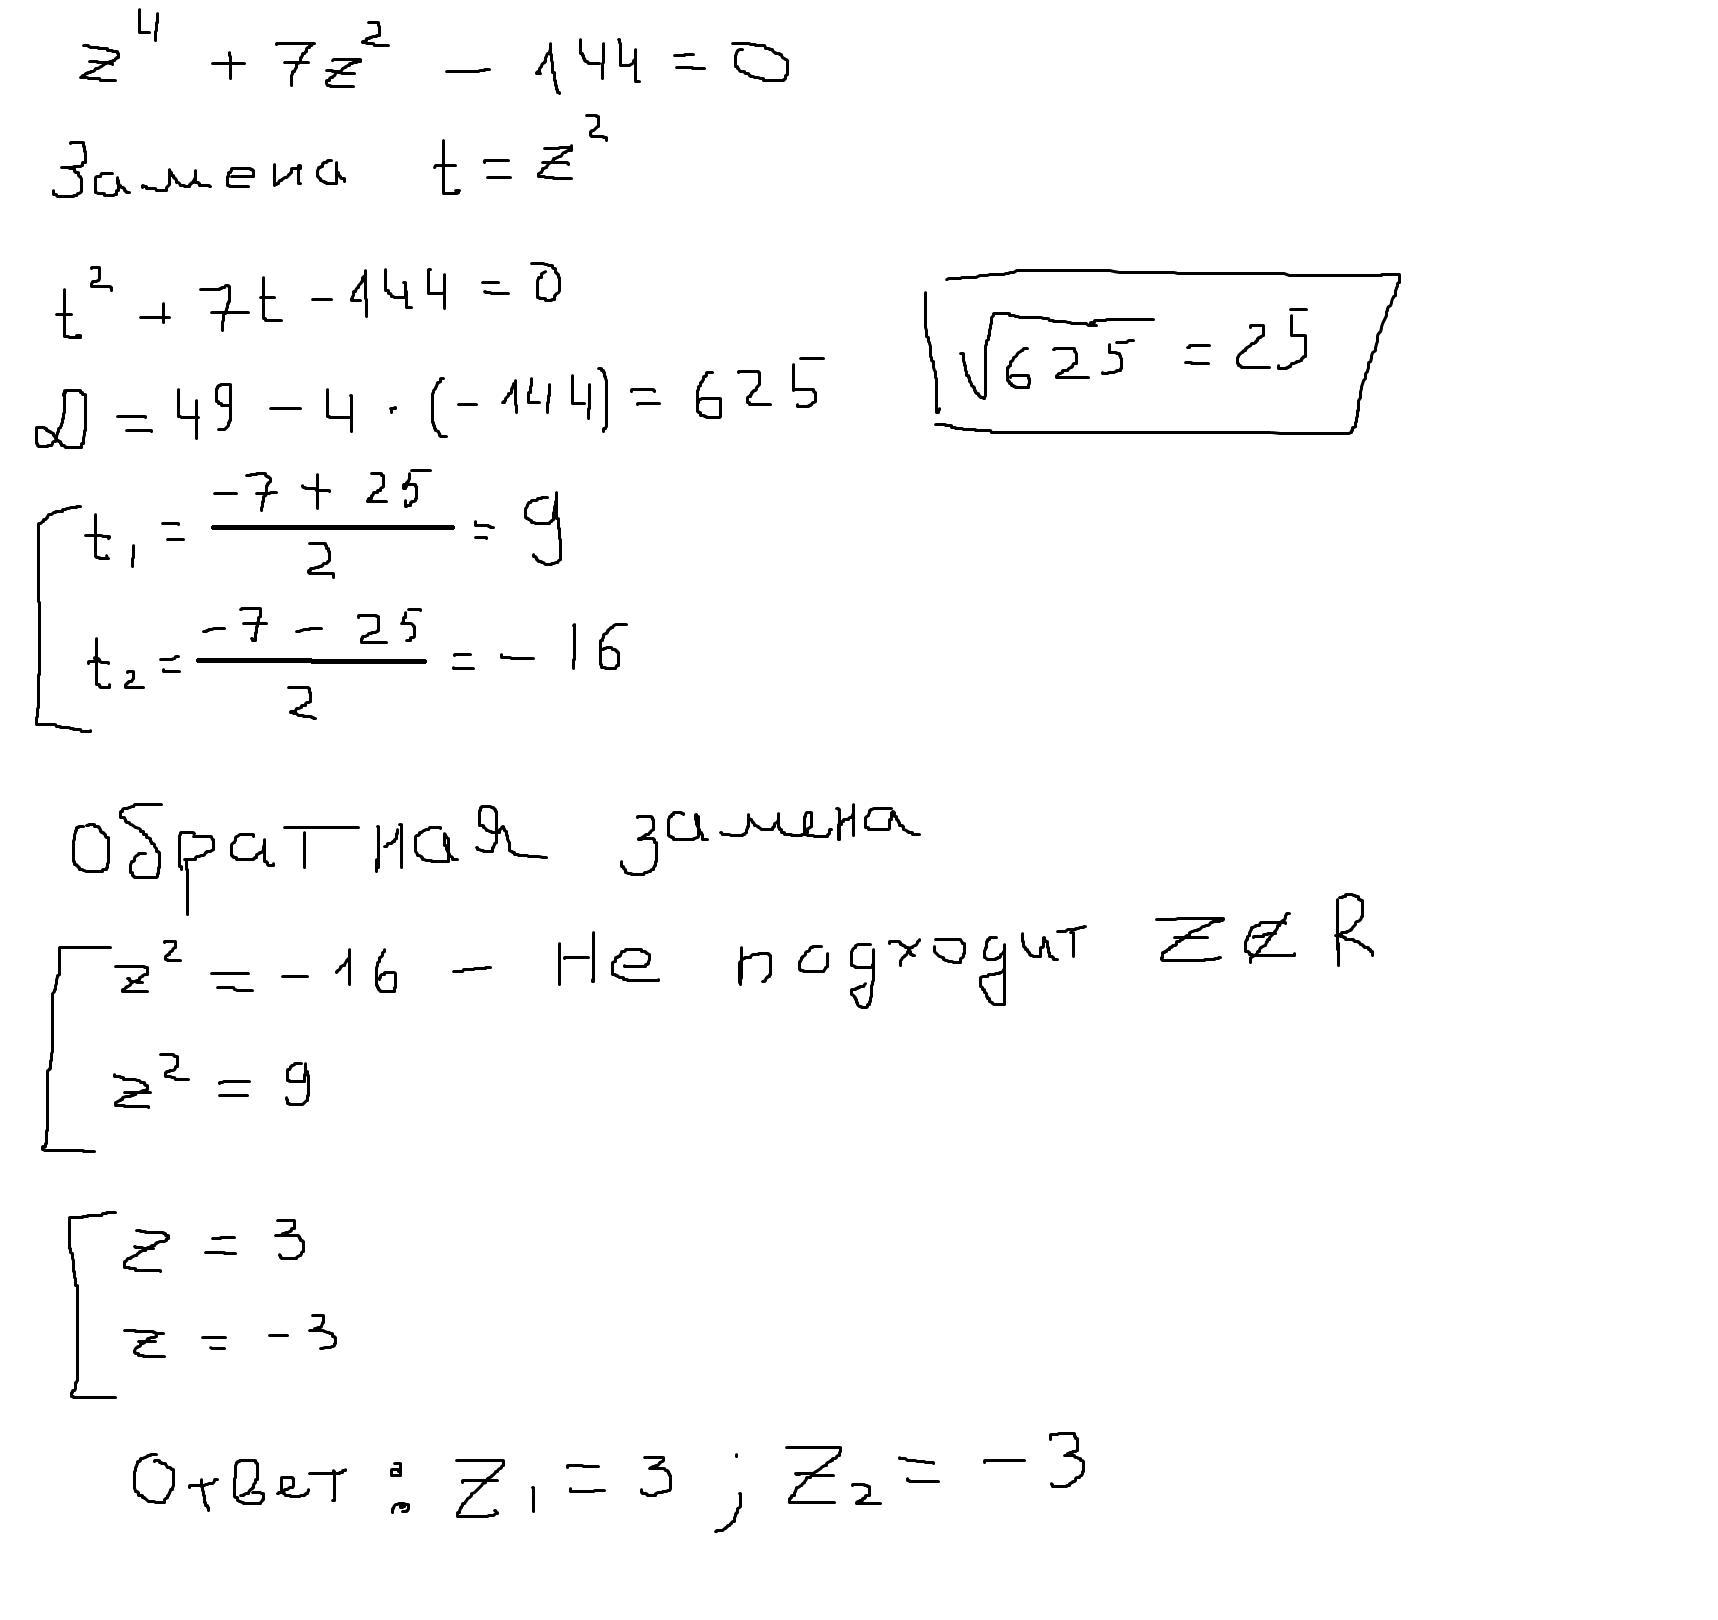 z⁴ + 7z² - 144 = 0
Замена t = z²
t² + 7t - 144 = 0
√625 = 25
D = 49 - 4 · (-144) = 625
t₁ = (-7 + 25)/2 = 9
t₂ = (-7 - 25)/2 = -16
Обратная замена
z² = -16 - Не подходит Z ∉ R
z² = 9
z = 3
z = -3
Ответ: Z₁ = 3 ; Z₂ = -3